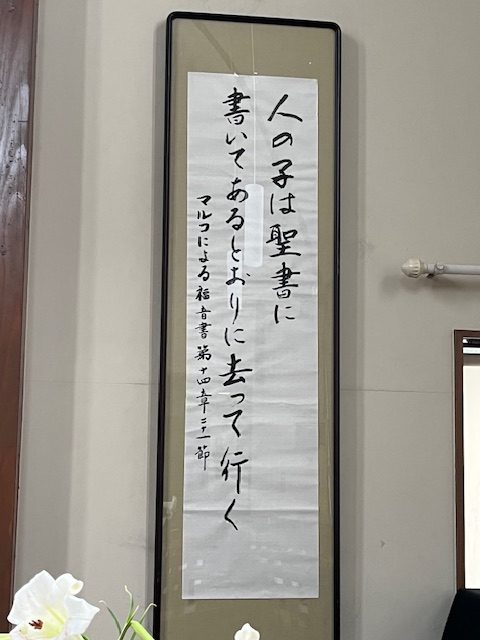 人の子は聖書に
書いてあるとおりに去って行く
マルコによる福音書第十四章二十一節